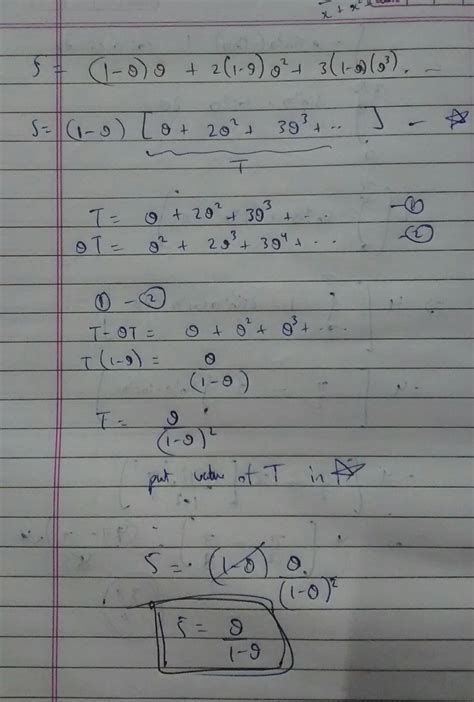 x + x²
S = (1-θ)θ + 2(1-θ)θ² + 3(1-θ)(θ³). ...
S = (1-θ) [θ + 2θ² + 3θ³ + ... ] - ☆
T
T = θ + 2θ² + 3θ³ + ... -①
θT = θ² + 2θ³ + 3θ⁴ + ... -②
① - ②
T-θT = θ + θ² + θ³ + ...
T(1-θ) = θ/(1-θ)
T = θ/(1-θ)²
put value of T in ☆
S = (1-θ) θ/(1-θ)²
S = θ/1-θ